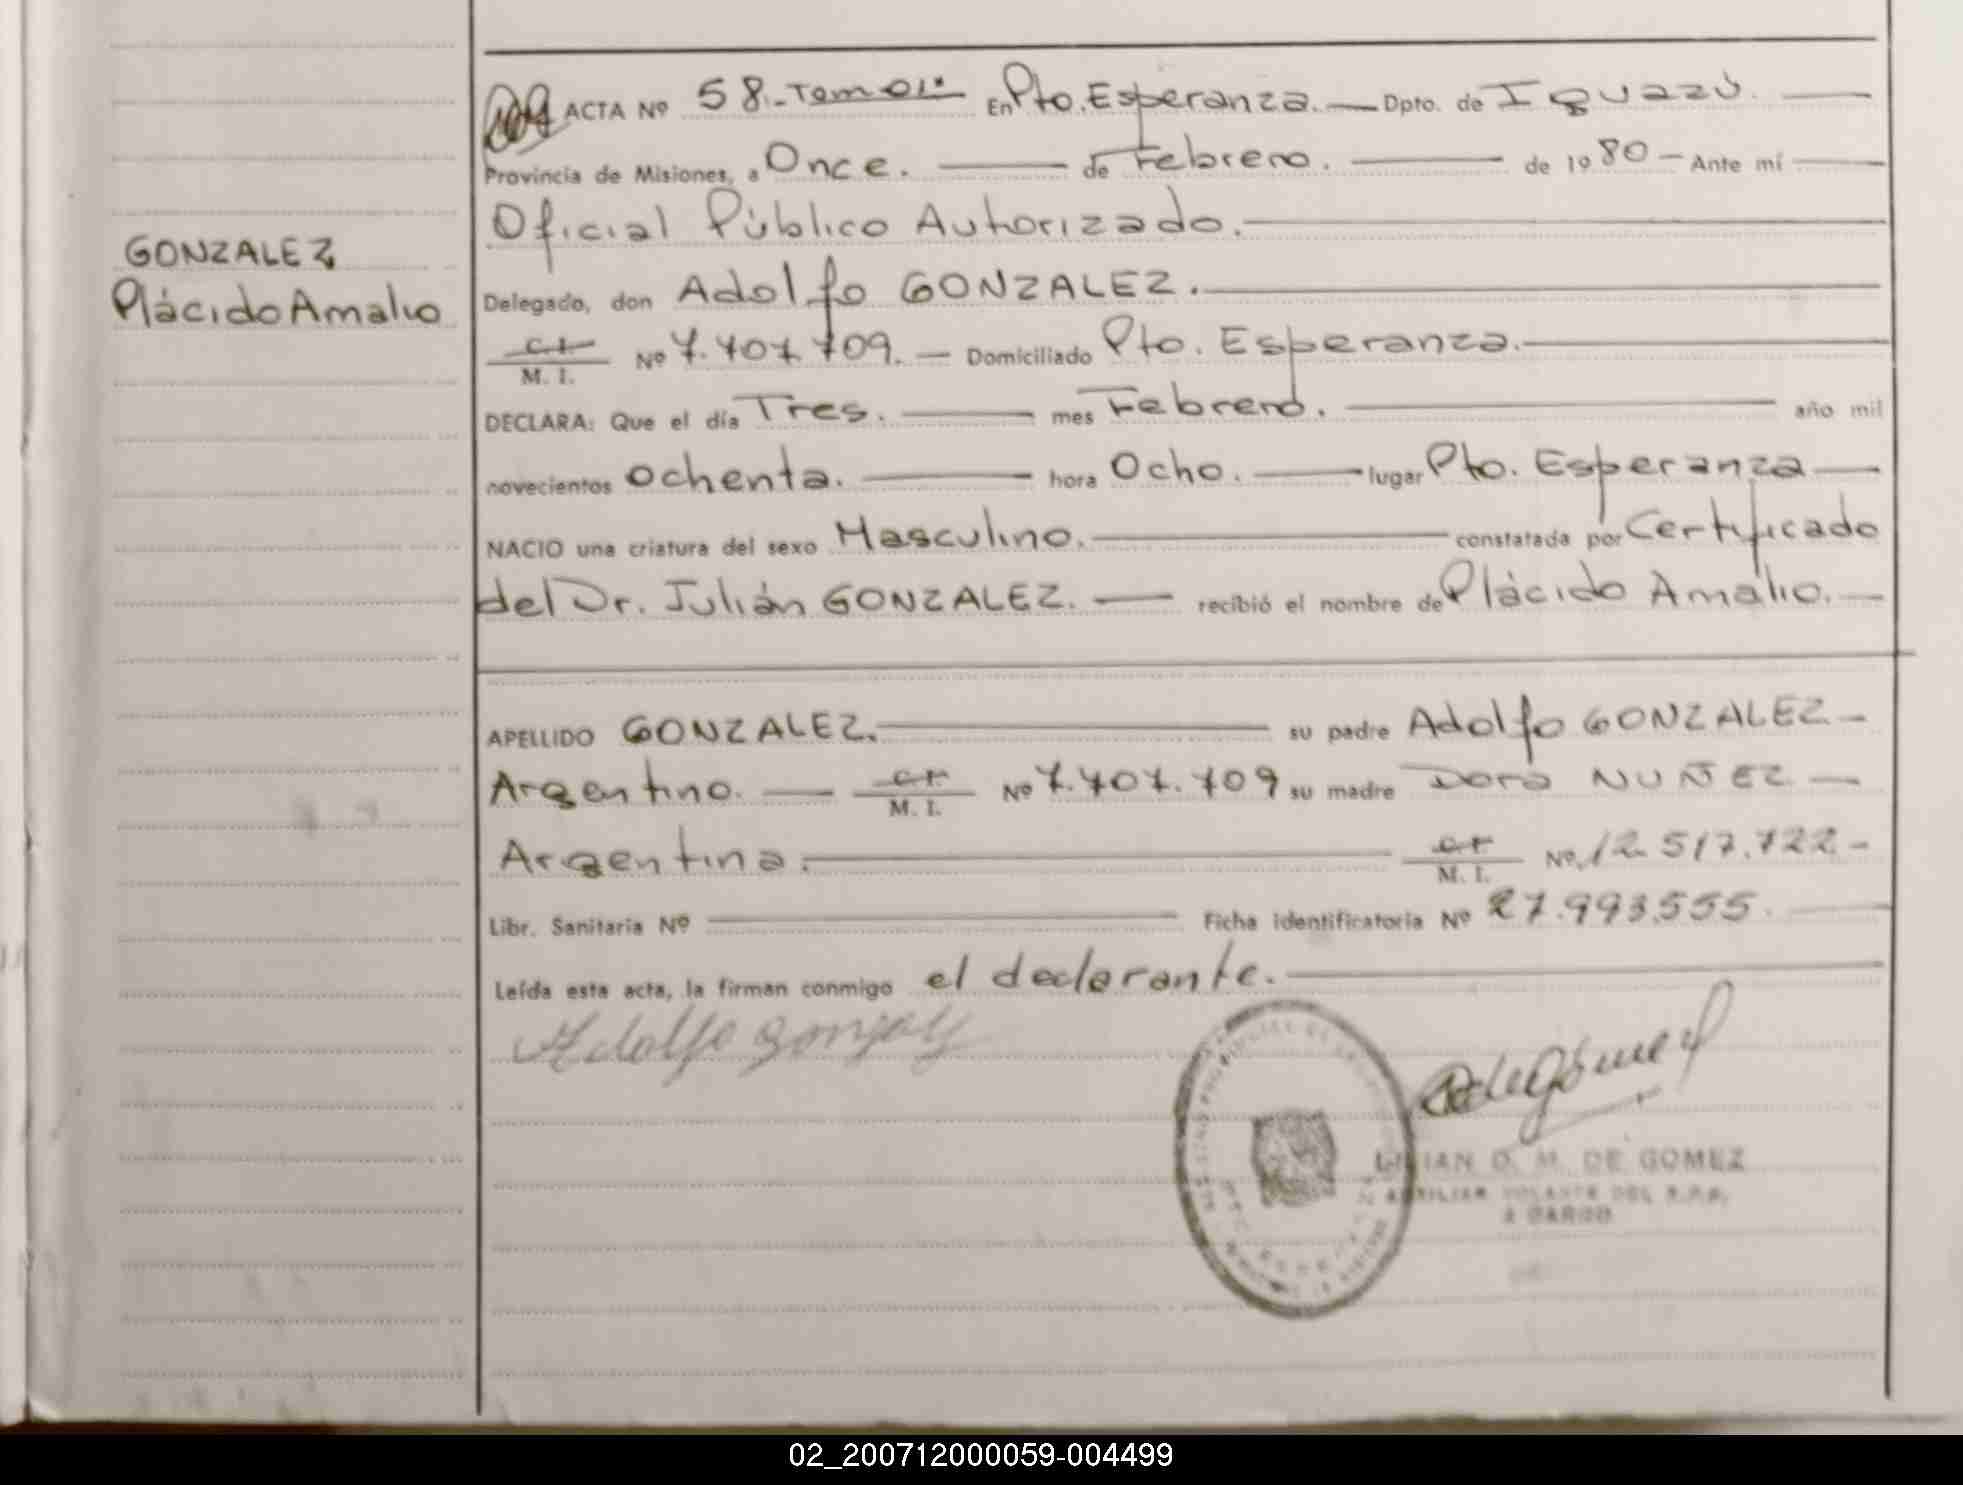 GONZALEZ
Plácido Amalio
ACTA Nº 58.- Tomo 1º En Pto. Esperanza. Dpto. de Iguazú.
Provincia de Misiones, a Once. de Febrero. de 1980 Ante mí
Oficial Público Autorizado.
Delegado, don Adolfo GONZALEZ.
C.I. M. I. Nº 7.407.709. Domiciliado Pto. Esperanza.
DECLARA: Que el día Tres. mes Febrero. año mil
novecientos ochenta. hora Ocho. lugar Pto. Esperanza
NACIO una criatura del sexo Masculino. constatada por Certificado
del Dr. Julián GONZALEZ. recibió el nombre de Plácido Amalio.
APELLIDO GONZALEZ. su padre Adolfo GONZALEZ
Argentino. C.I. M. I. Nº 7.407.709 su madre Dora NUÑEZ
Argentina. C.I. M. I. Nº 12.517.722
Libr. Sanitaria Nº Ficha identificatoria Nº 27.993.555.
Leída esta acta, la firman conmigo el declarante.
Adolfo Gonzalez
de Gómez
LILIAN D. M. DE GOMEZ
AUXILIAR VOLANTE DEL R.P.P.
A CARGO
02_200712000059-004499